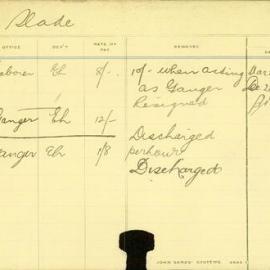 Slade
OFFICE DEP'T RATE OF PAY REMARKS
aborer Eh 8/- 10/- when acting
as Ganger
Resigned
Ganger Eh 12/- Discharged
anger Eh 1/8 per hour
Discharged
JOHN SANDS' SYSTEMS